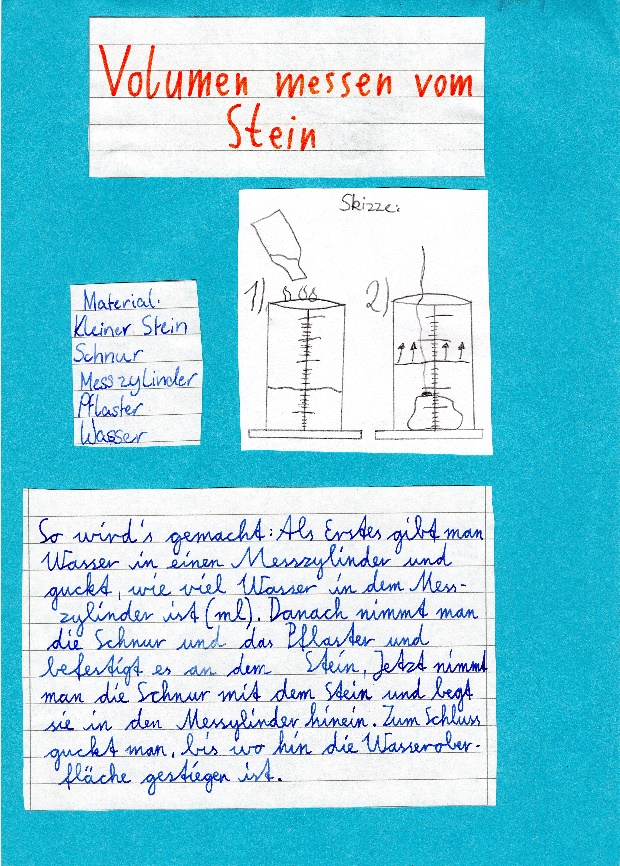 Volumen messen vom
Stein
Skizze:
1)
2)
Material:
Kleiner Stein
Schnur
Messzylinder
Pflaster
Wasser
So wird's gemacht: Als Erstes gibt man
Wasser in einen Messzylinder und
guckt, wie viel Wasser in dem Mess-
zylinder ist (ml). Danach nimmt man
die Schnur und das Pflaster und
befestigt es an dem Stein. Jetzt nimmt
man die Schnur mit dem Stein und legt
sie in den Messylinder hinein. Zum Schluss
guckt man, bis wo hin die Wasserober-
fläche gestiegen ist.